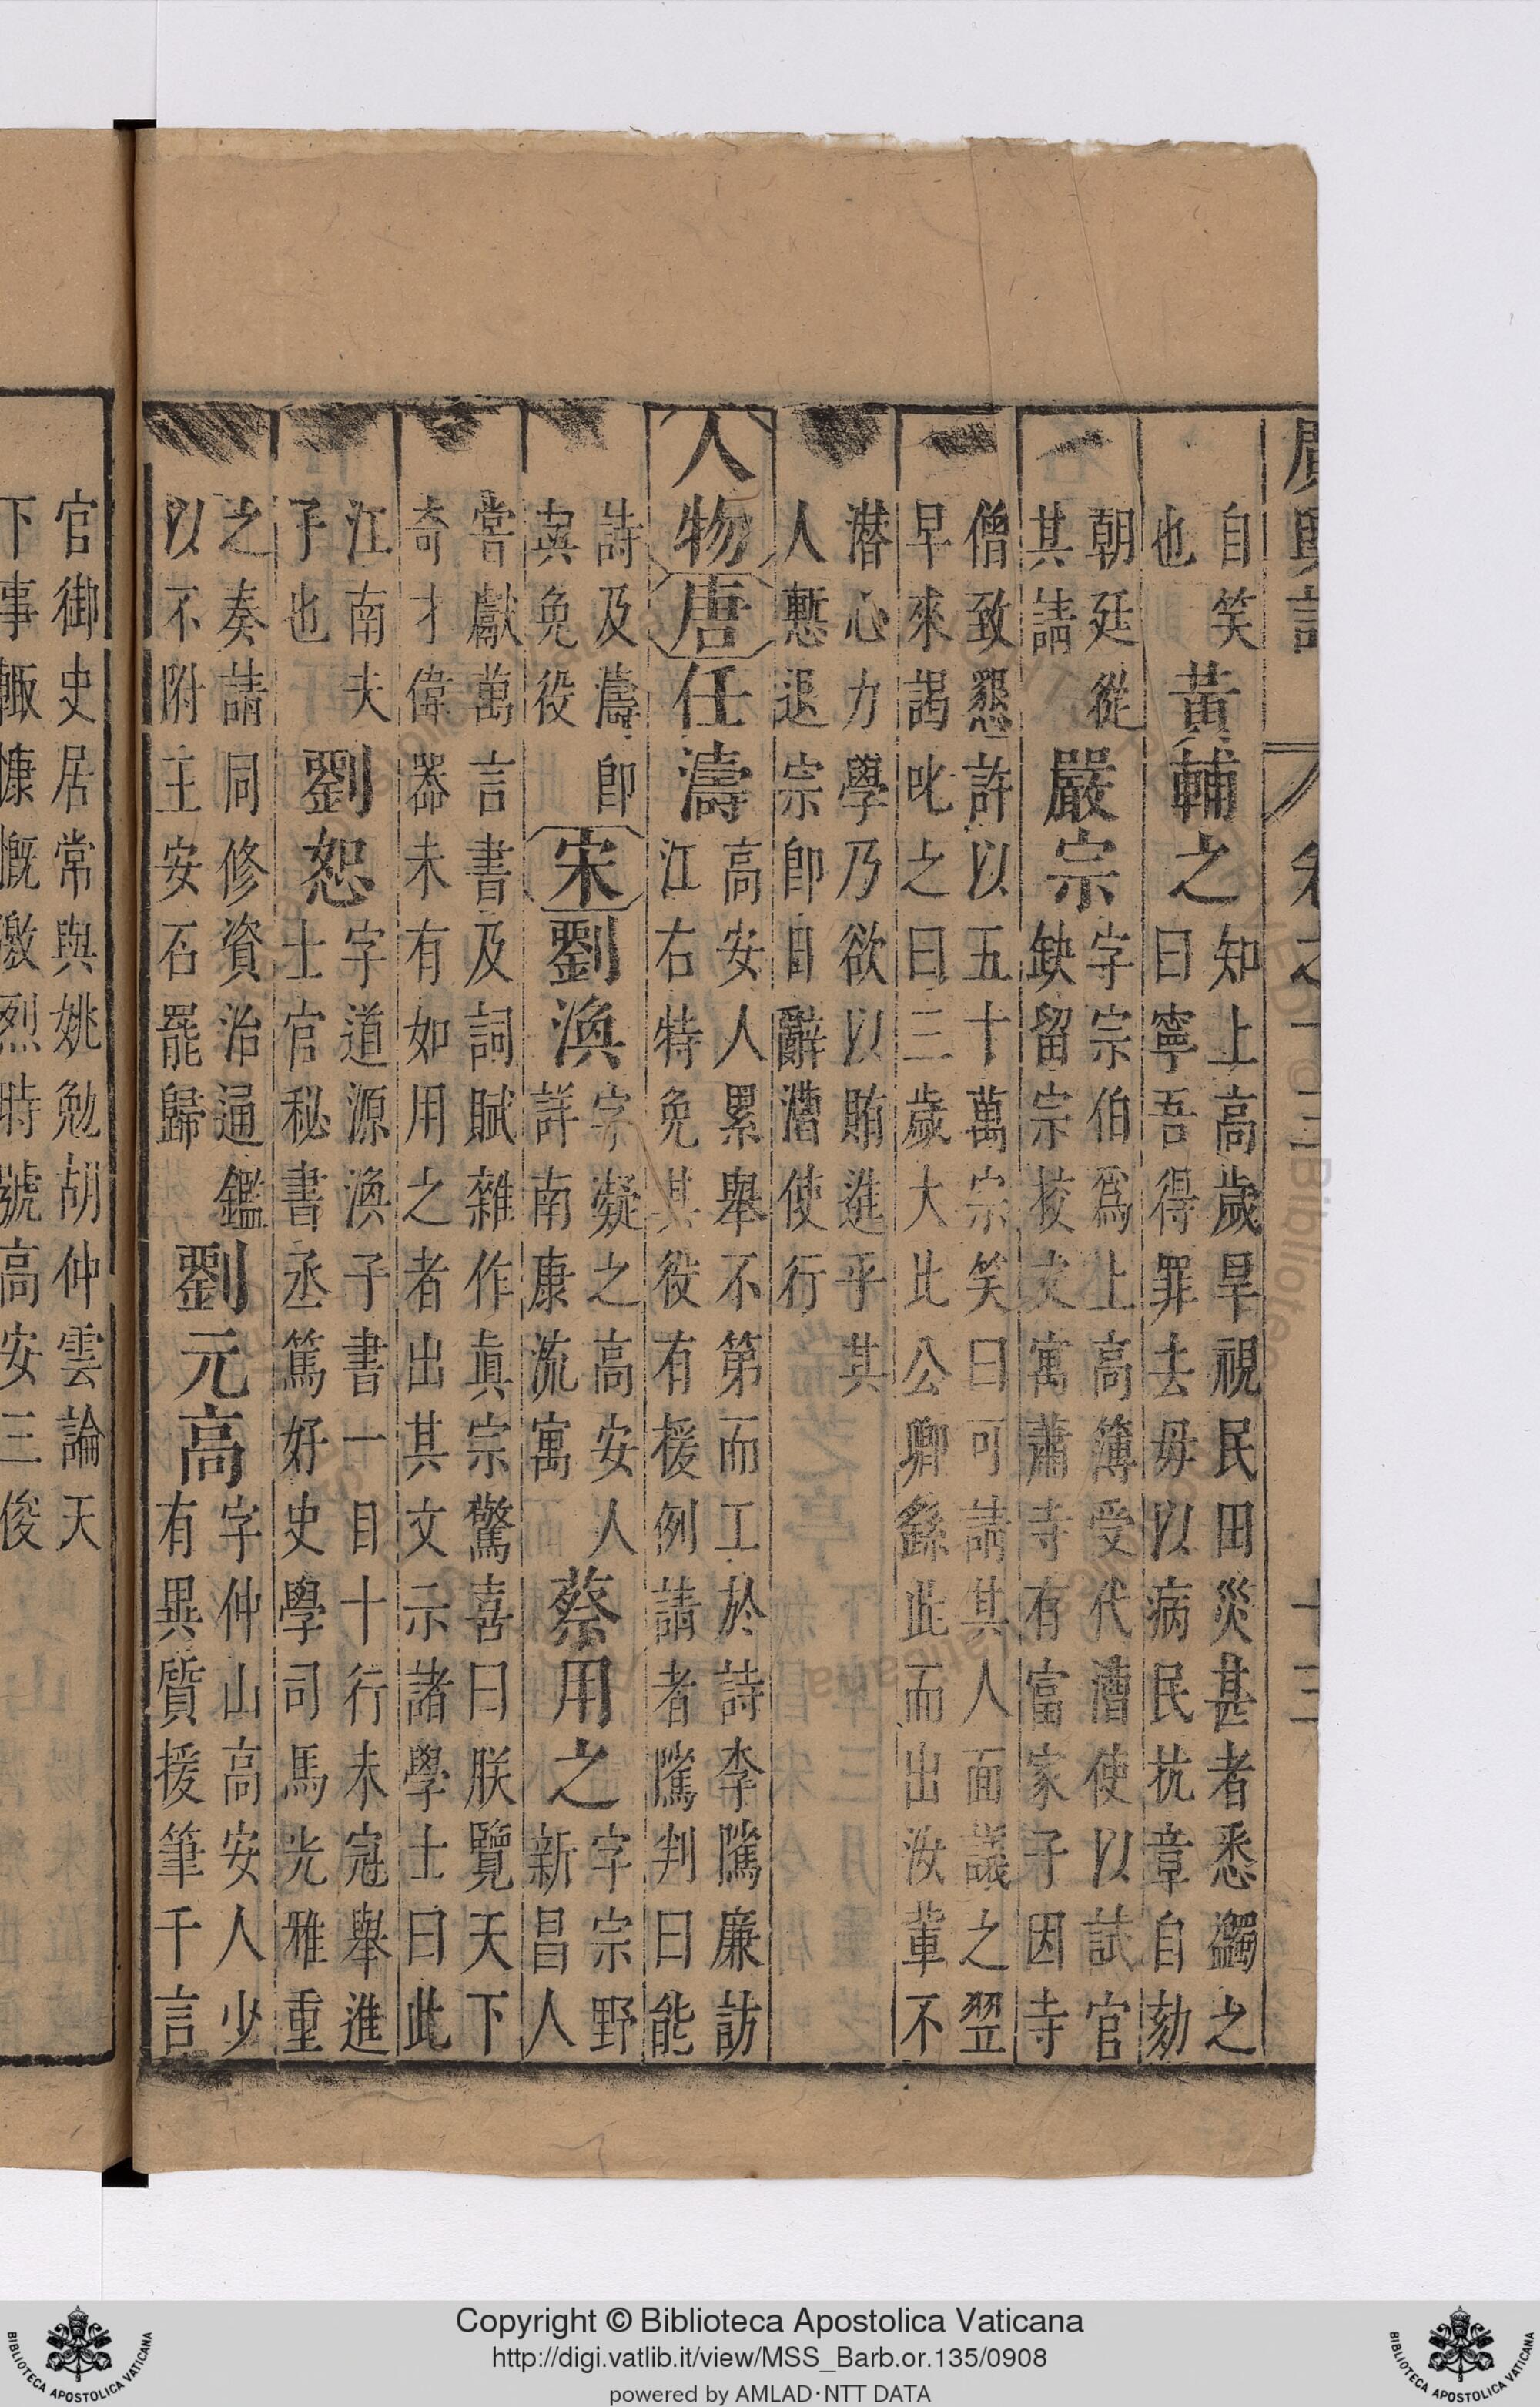 廣輿記 卷之十三 十三
自笑
也
黃輔之
知上高歲旱視民田災甚者悉蠲之
曰寧吾得罪去毋以病民抗章自劾
朝廷從
其請
嚴宗
字宗伯爲上高簿受代漕使以試官
缺留宗校文寓蕭寺有富家子因寺
僧致懇許以五十萬宗笑曰可請其人面議之翌
早來謁叱之曰三歲大比公卿繇此而出汝輩不
潛心力學乃欲以賄進乎其
人慙退宗卽日辭漕使行
人物 唐 任濤
高安人累舉不第而工於詩李隲廉訪
江右特免其役有援例請者隲判曰能
詩及濤卽
與免役
宋 劉渙
字凝之高安人
詳南康流寓
蔡用之
字宗野
新昌人
嘗獻萬言書及詞賦雜作真宗驚喜曰朕覽天下
奇才偉器未有如用之者出其文示諸學士曰此
江南夫
子也
劉恕
字道源渙子書一目十行未冠舉進
士官秘書丞篤好史學司馬光雅重
之奏請同修資治通鑑
以不附王安石罷歸
劉元高
字仲山高安人少
有異質援筆千言
官御史居常與姚勉胡仲雲論天
下事輒慷慨激烈時號高安三俊
Copyright © Biblioteca Apostolica Vaticana
http://digi.vatlib.it/view/MSS_Barb.or.135/0908
powered by AMLAD·NTT DATA
BIBLIOTECA APOSTOLICA VATICANA
BIBLIOTECA APOSTOLICA VATICANA